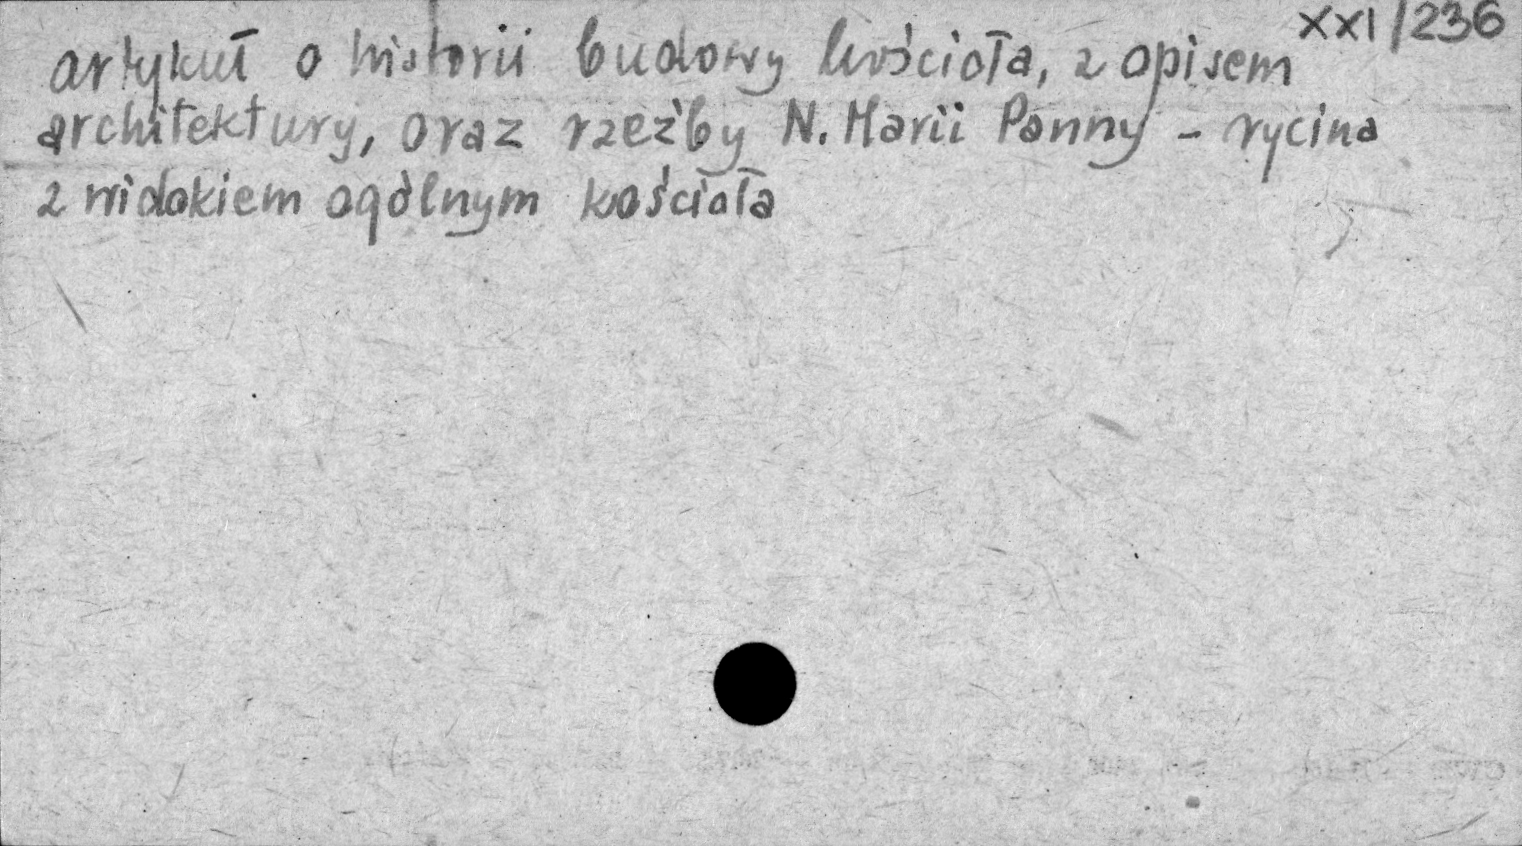 XXI/236
artykuł o historii budowy kościoła, z opisem
architektury, oraz rzeźby N. Marii Panny - rycina
z widokiem ogólnym kościoła